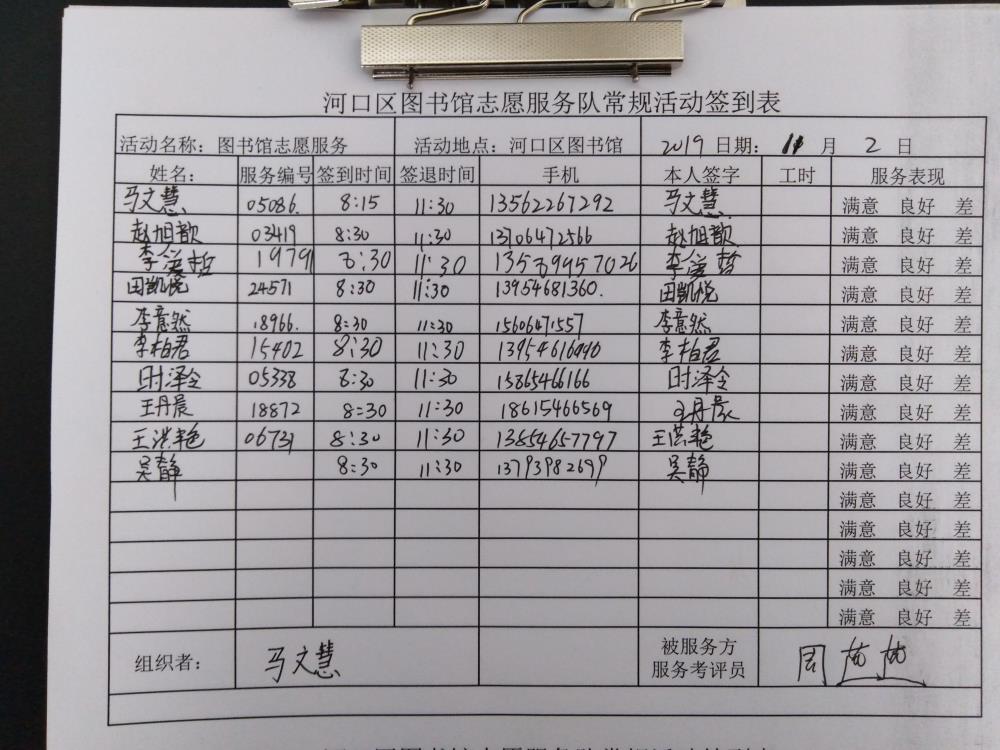 河口区图书馆志愿服务队常规活动签到表
活动名称：图书馆志愿服务 活动地点：河口区图书馆 2019 日期： 11 月 2 日
姓名： 服务编号 签到时间 签退时间 手机 本人签字 工时 服务表现
马文慧 05086. 8:15 11:30 13562267292 马文慧 满意 良好 差
赵旭歆 03419 8:30 11:30 13706472566 赵旭歆 满意 良好 差
李 19791 8:30 11:30 李 满意 良好 差
田凯悦 24571 8:30 11:30 13954681360. 田凯悦 满意 良好 差
李意然 18966. 8:30 11:30 15606471557 李意然 满意 良好 差
李柏君 15402 8:30 11:30 李柏君 满意 良好 差
时泽令 05338 8:30 11:30 15865466166 时泽令 满意 良好 差
王丹晨 18872 8:30 11:30 18615466569 王丹晨 满意 良好 差
王洪艳 06731 8:30 11:30 13854657797 王洪艳 满意 良好 差
吴静 8:30 11:30 吴静 满意 良好 差
满意 良好 差
满意 良好 差
满意 良好 差
满意 良好 差
满意 良好 差
组织者： 马文慧 被服务方 周
服务考评员